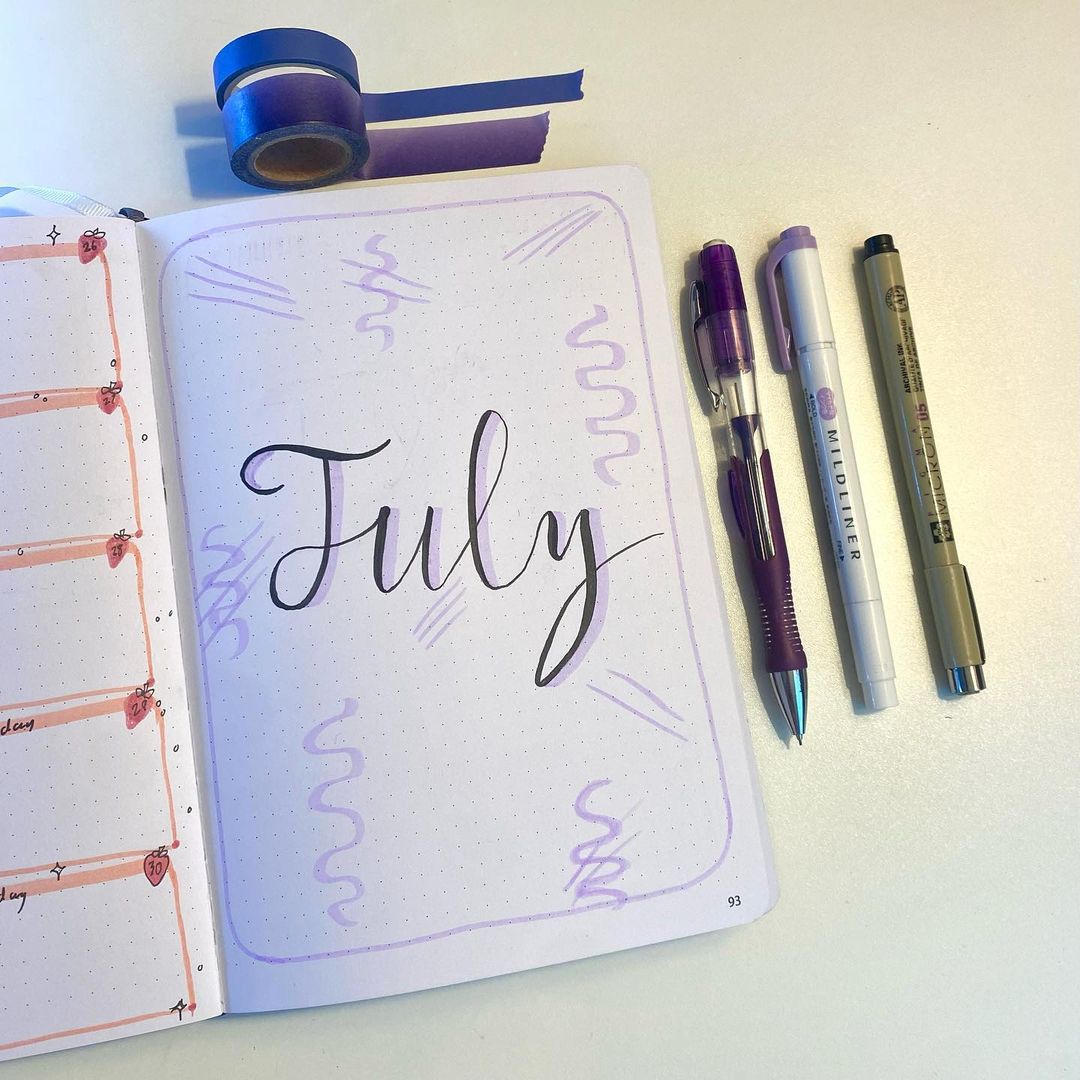 26
27
28
day
29
day
30
July
93
MILDLINER
MICRON 05
ARCHIVAL INK